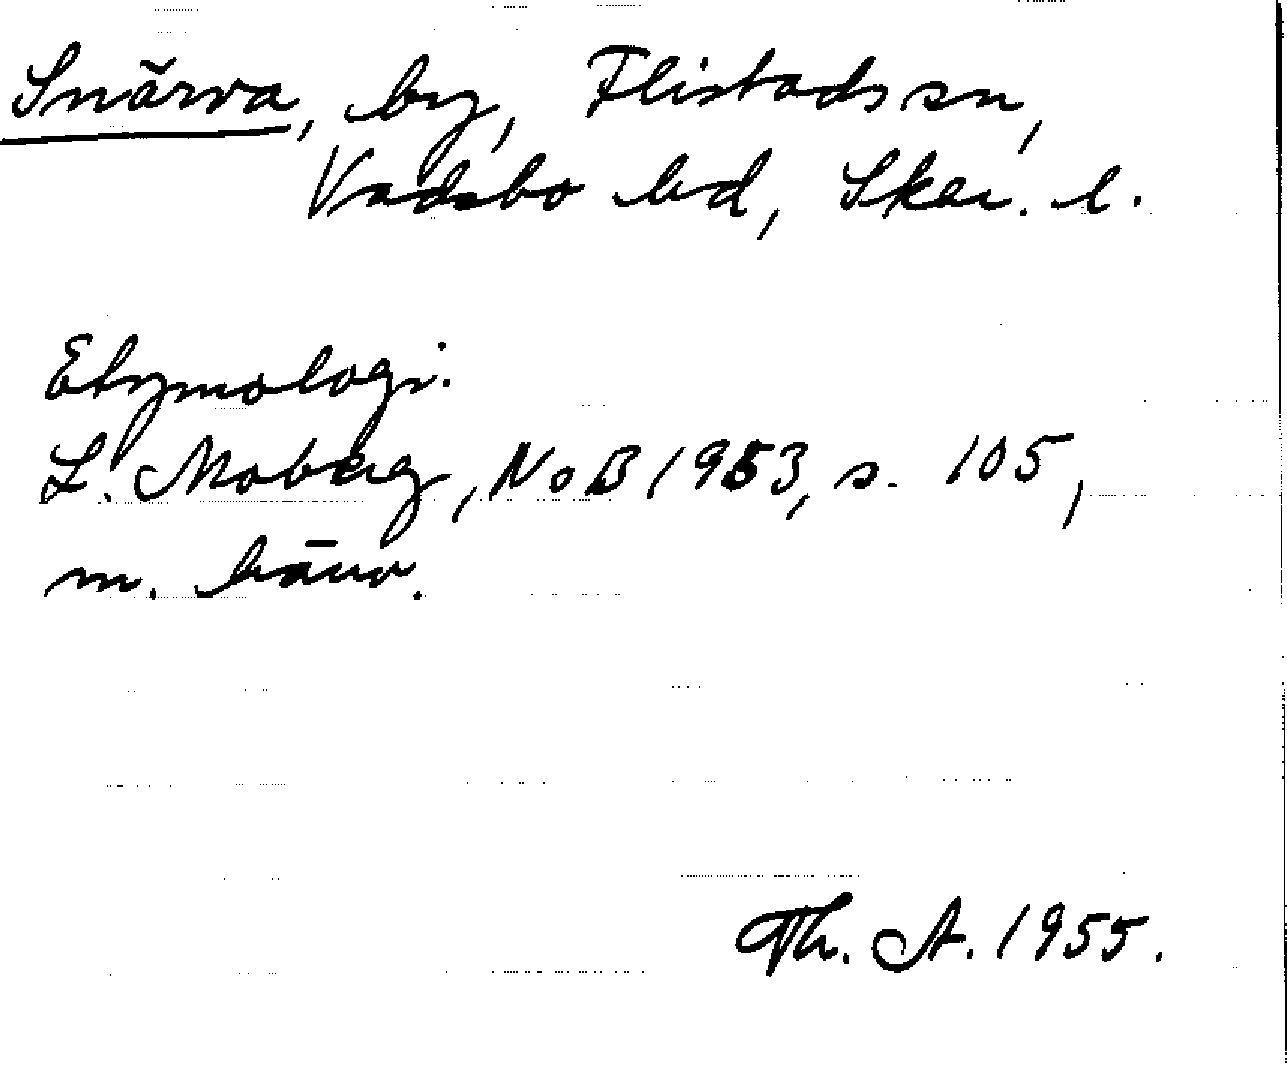 Snärva, by, Flistads sn,
Vadsbo hd, Skar. l.
Etymologi.
L. Moberg, NoB 1953, s. 105,
m. hänv.
Th. A. 1955.